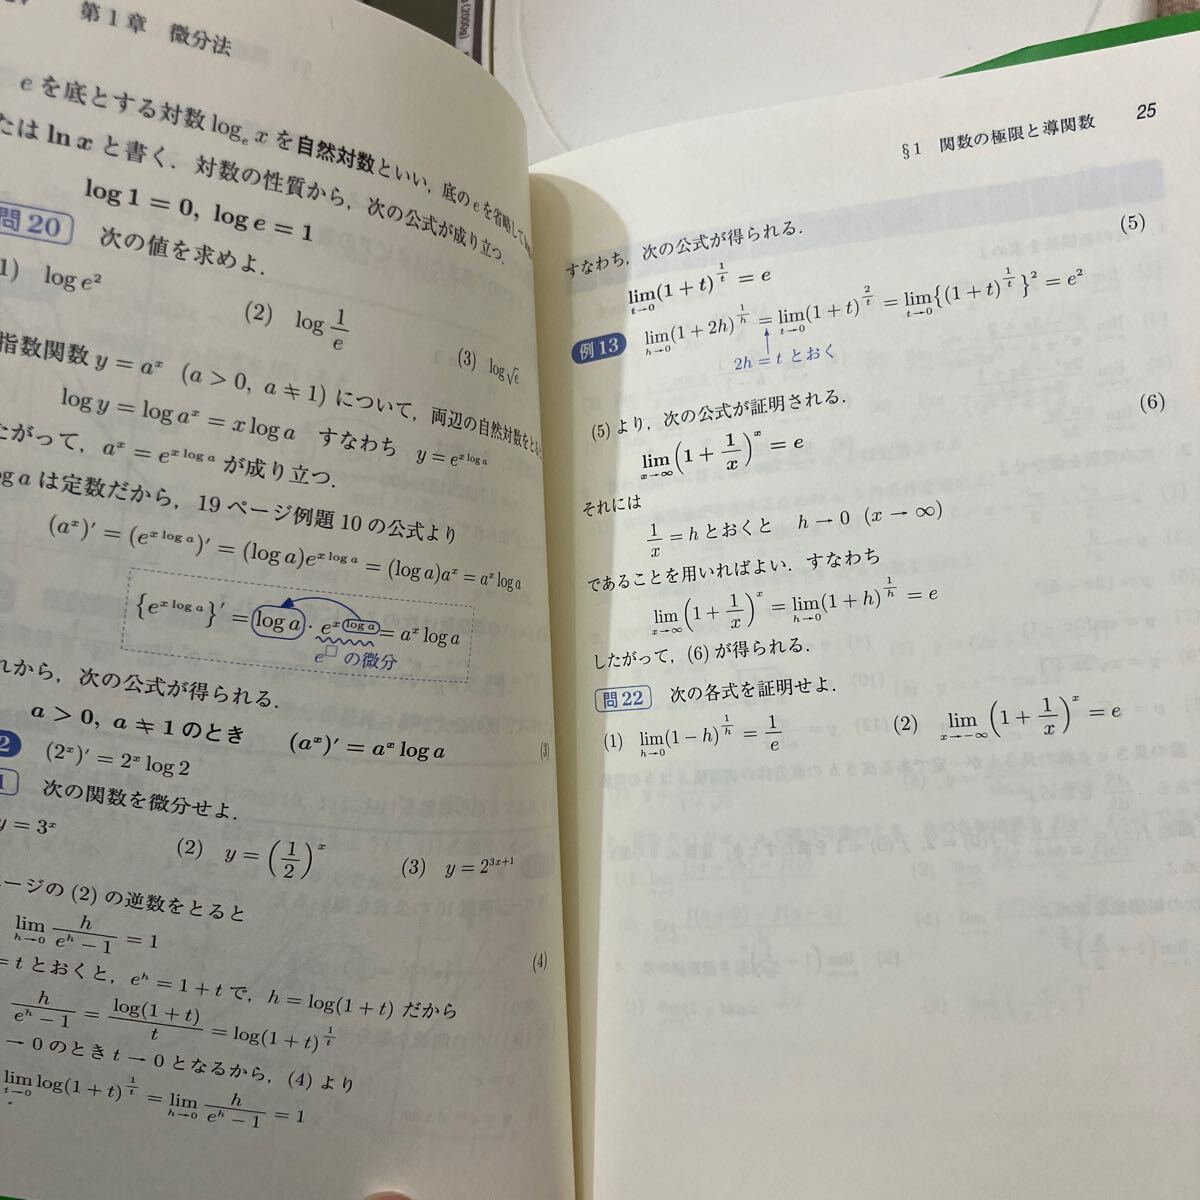 第1章 微分法
eを底とする対数 logₑ x を自然対数といい,底のeを省略して
たは ln x と書く.対数の性質から,次の公式が成り立つ.
log 1 = 0, log e = 1
問20 次の値を求めよ.
(1) log e² (2) log 1/e (3) log √e
指数関数 y = aˣ (a > 0, a ≠ 1) について,両辺の自然対数をとると
log y = log aˣ = x log a すなわち y = e^(x log a)
たがって,aˣ = e^(x log a) が成り立つ.
og a は定数だから,19ページ例題10の公式より
(aˣ)′ = (e^(x log a))′ = (log a)e^(x log a) = (log a)aˣ = aˣ log a
{e^(x log a)}′ = log a · e^(x log a) = aˣ log a
e^□ の微分
れから,次の公式が得られる.
a > 0, a ≠ 1 のとき (aˣ)′ = aˣ log a (3)
2 (2ˣ)′ = 2ˣ log 2
1 次の関数を微分せよ.
y = 3ˣ (2) y = (1/2)ˣ (3) y = 2^(3x+1)
ページの (2) の逆数をとると
lim_(h→0) h/(eʰ − 1) = 1 (4)
= t とおくと,eʰ = 1 + t で,h = log(1 + t) だから
h/(eʰ − 1) = log(1 + t)/t = log(1 + t)^(1/t)
→ 0 のとき t → 0 となるから,(4) より
lim_(t→0) log(1 + t)^(1/t) = lim_(h→0) h/(eʰ − 1) = 1
§1 関数の極限と導関数 25
すなわち,次の公式が得られる.
lim_(t→0) (1 + t)^(1/t) = e (5)
例13 lim_(h→0) (1 + 2h)^(1/h) = lim_(t→0) (1 + t)^(2/t) = lim_(t→0) {(1 + t)^(1/t)}² = e²
2h = t とおく
(5) より,次の公式が証明される.
lim_(x→∞) (1 + 1/x)ˣ = e (6)
それには
1/x = h とおくと h → 0 (x → ∞)
であることを用いればよい.すなわち
lim_(x→∞) (1 + 1/x)ˣ = lim_(h→0) (1 + h)^(1/h) = e
したがって,(6) が得られる.
問22 次の各式を証明せよ.
(1) lim_(h→0) (1 − h)^(1/h) = 1/e (2) lim_(x→−∞) (1 + 1/x)ˣ = e